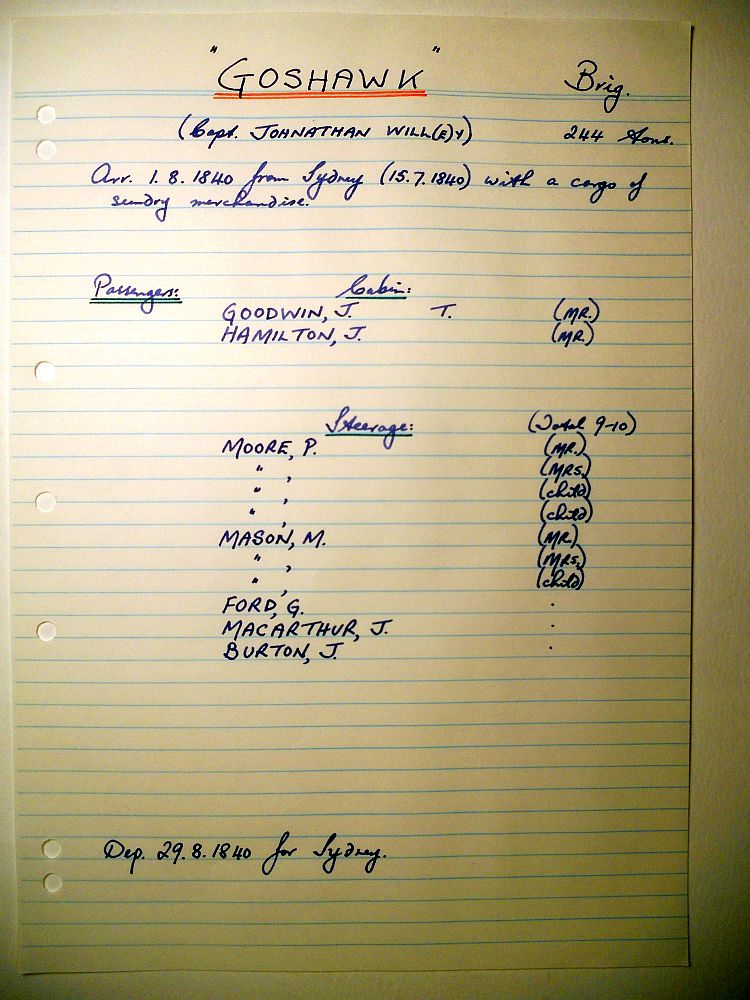 "GOSHAWK" Brig.
(Capt. JOHNATHAN WILL(E)Y) 244 tons.
Arr. 1.8.1840 from Sydney (15.7.1840) with a cargo of
sundry merchandise.
Passengers: Cabin:
GOODWIN, J. T. (MR.)
HAMILTON, J. (MR.)
Steerage: (Total 9-10)
MOORE, P. (MR.)
" , (MRS.)
" , (child)
" , (child)
MASON, M. (MR.)
" , (MRS.)
" , (child)
FORD, G. .
MACARTHUR, J. .
BURTON, J. .
Dep. 29.8.1840 for Sydney.